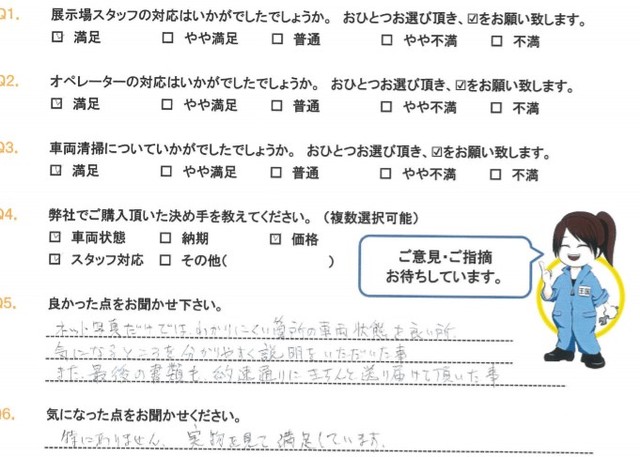 Q1. 展示場スタッフの対応はいかがでしたでしょうか。 おひとつお選び頂き、☑をお願い致します。
☑ 満足 □ やや満足 □ 普通 □ やや不満 □ 不満
Q2. オペレーターの対応はいかがでしたでしょうか。 おひとつお選び頂き、☑をお願い致します。
☑ 満足 □ やや満足 □ 普通 □ やや不満 □ 不満
Q3. 車両清掃についていかがでしたでしょうか。 おひとつお選び頂き、☑をお願い致します。
☑ 満足 □ やや満足 □ 普通 □ やや不満 □ 不満
Q4. 弊社でご購入頂いた決め手を教えてください。（複数選択可能）
☑ 車両状態 □ 納期 ☑ 価格
☑ スタッフ対応 □ その他( )
ご意見・ご指摘
お待ちしています。
Q5. 良かった点をお聞かせ下さい。
ネット写真だけではわかりにくい箇所の車両状態も良い所、
気になるところを分かりやすく説明をいただいた事
また、最後の書類も約束通りにきちんと送り届けて頂いた事
Q6. 気になった点をお聞かせください。
特にありません。実物を見て満足しています。